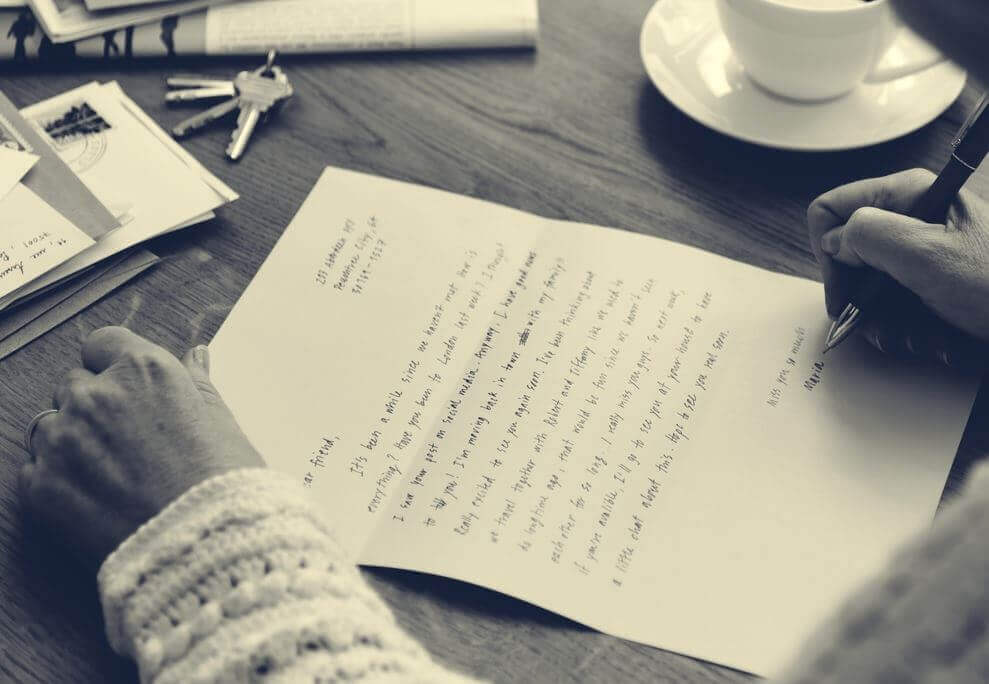 City,
ar friend,
It's been a while since we haven't met. How is
everything? Have you been to London last week? I thought
I saw your post on social media. Anyway, I have good news
to tell you! I'm moving back in town with my family!
Really excited to see you again soon. I've been thinking about
we travel together with Robert and Tiffany like we used to
do long time ago, that would be fun since we haven't seen
each other for so long. I really miss you guys. So next week,
if you're avalible, I'll go to see you at your house to have
a little chat about this. Hope to see you real soon.
Miss you so much
Maria
11, rue
75001,